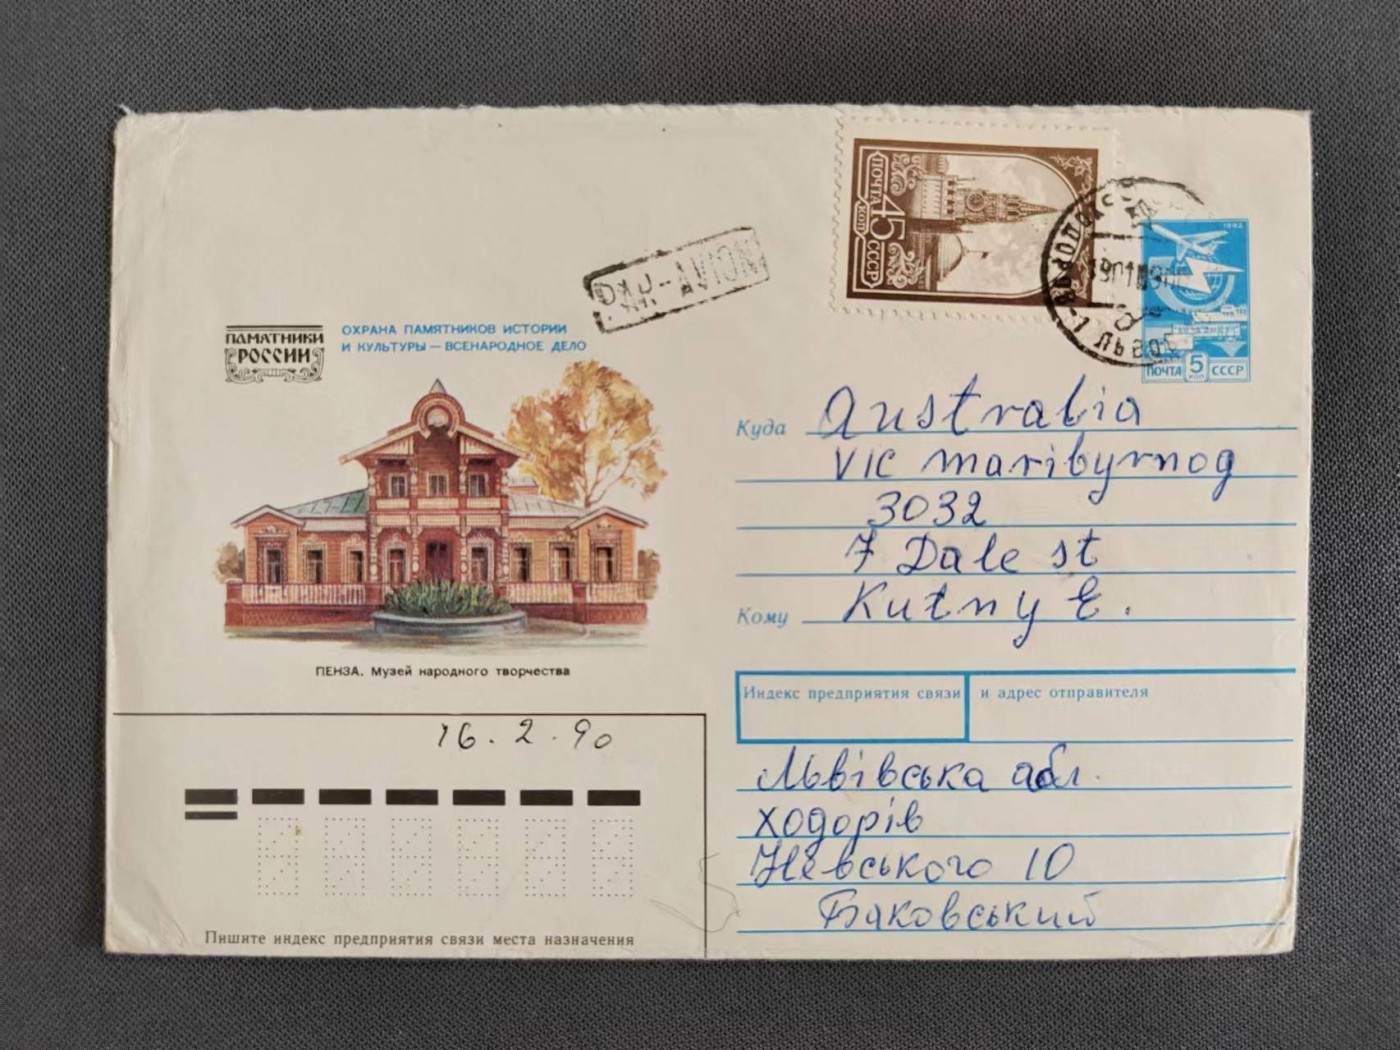 ПОЧТА
45
КОП
СССР
PAR-AVION
1982
ПОЧТА 5 КОП СССР
ПАМЯТНИКИ
РОССИИ
ОХРАНА ПАМЯТНИКОВ ИСТОРИИ
И КУЛЬТУРЫ — ВСЕНАРОДНОЕ ДЕЛО
ПЕНЗА. Музей народного творчества
Куда Australia
VIC maribyrnog
3032
7 Dale st
Кому Kutny E.
Индекс предприятия связи и адрес отправителя
Львівська обл.
Ходорів
Невського 10
Баковський
16.2.90
Пишите индекс предприятия связи места назначения